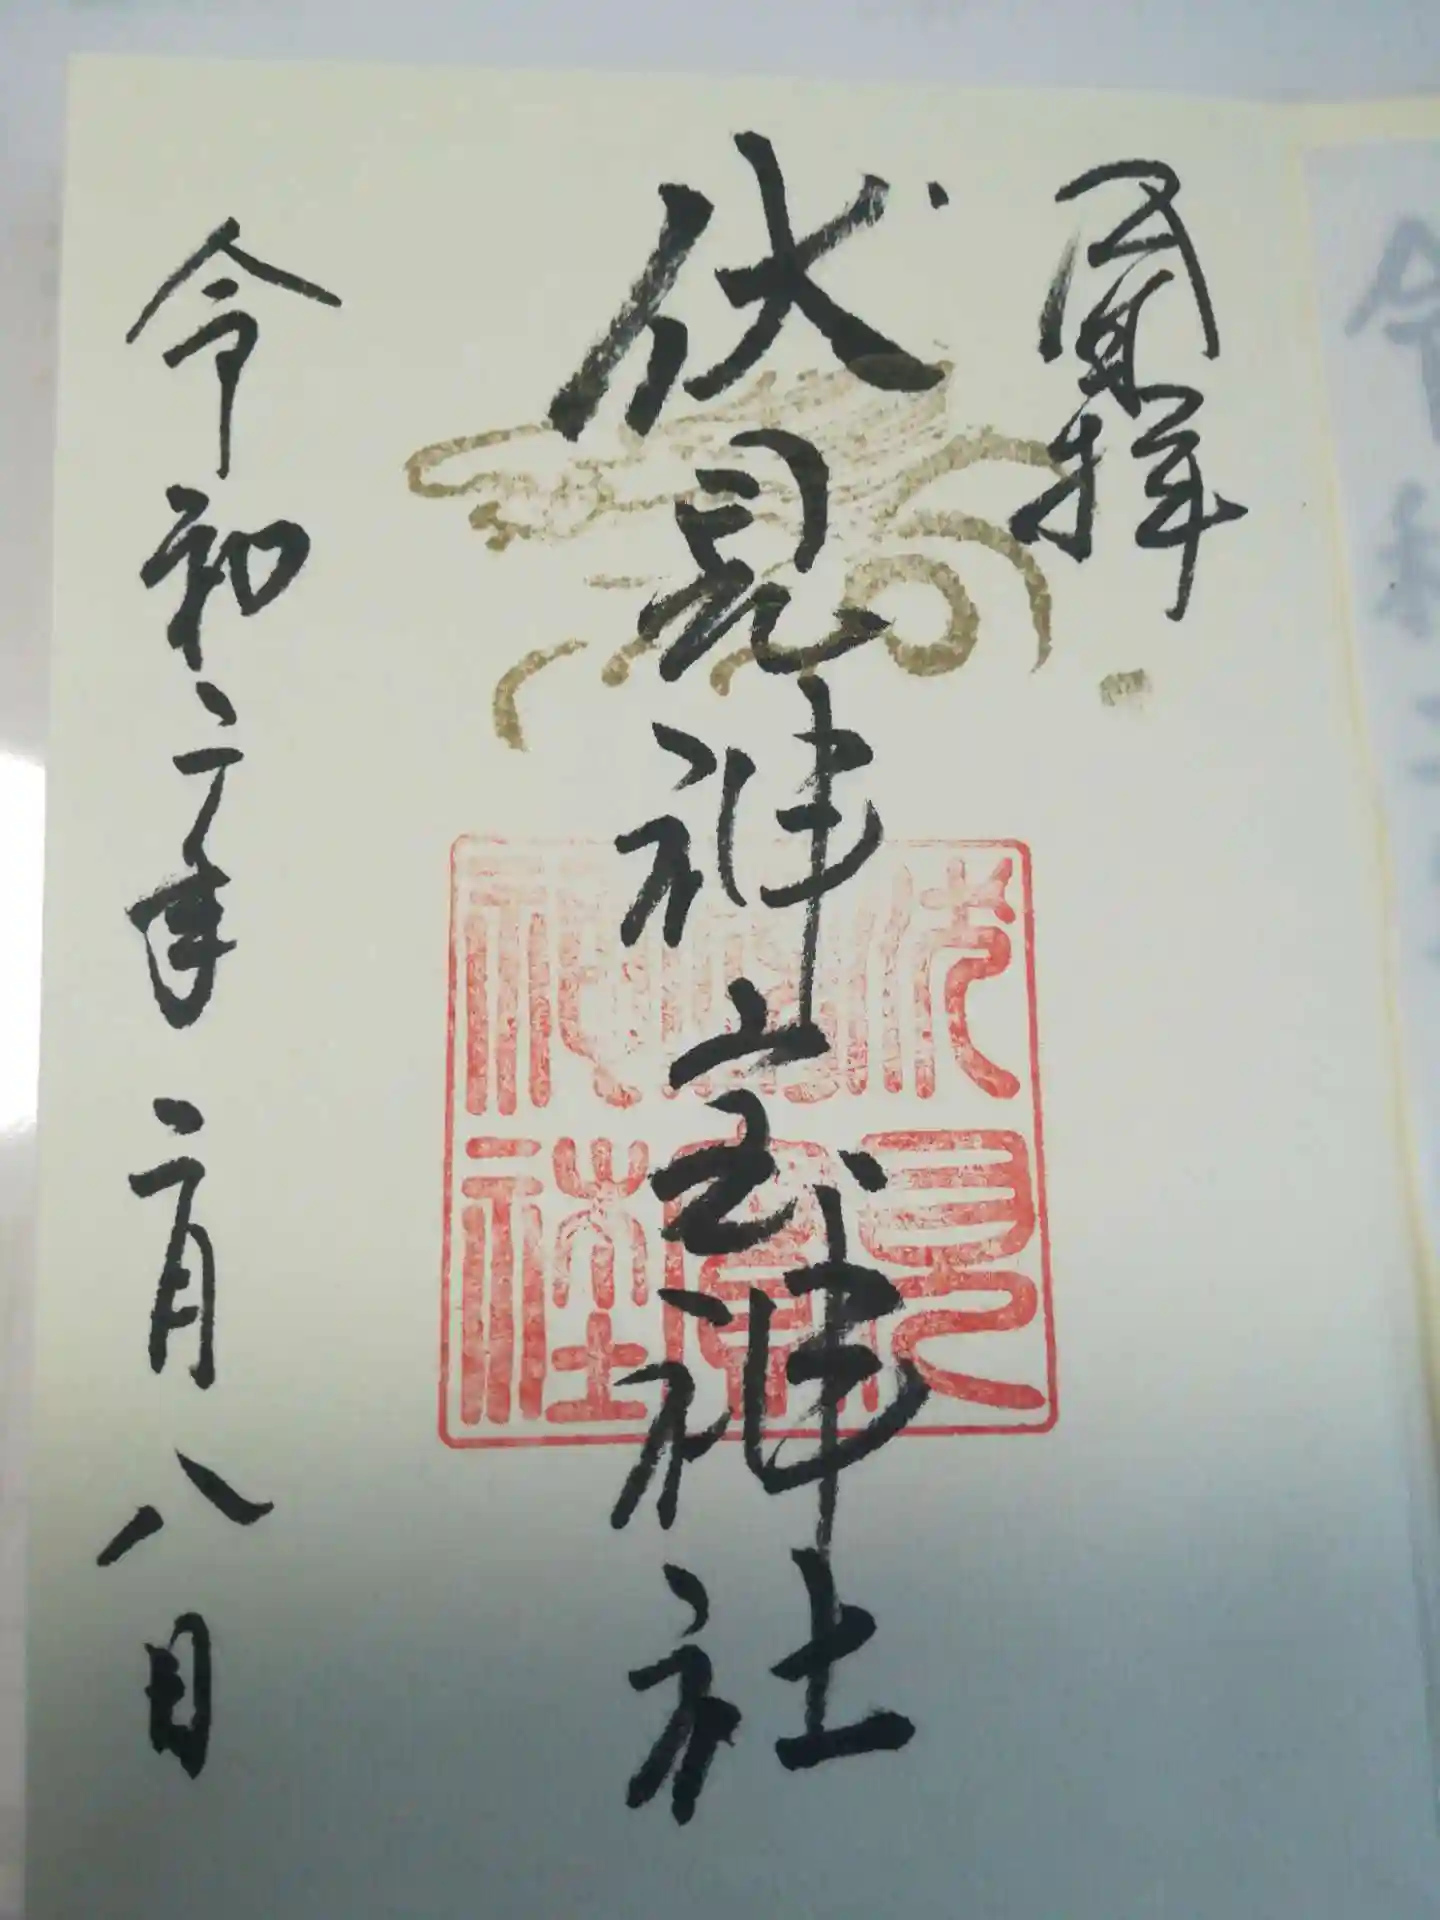 拝
伏見神宝神社
令和二年二月八日
伏見
神寶
神社